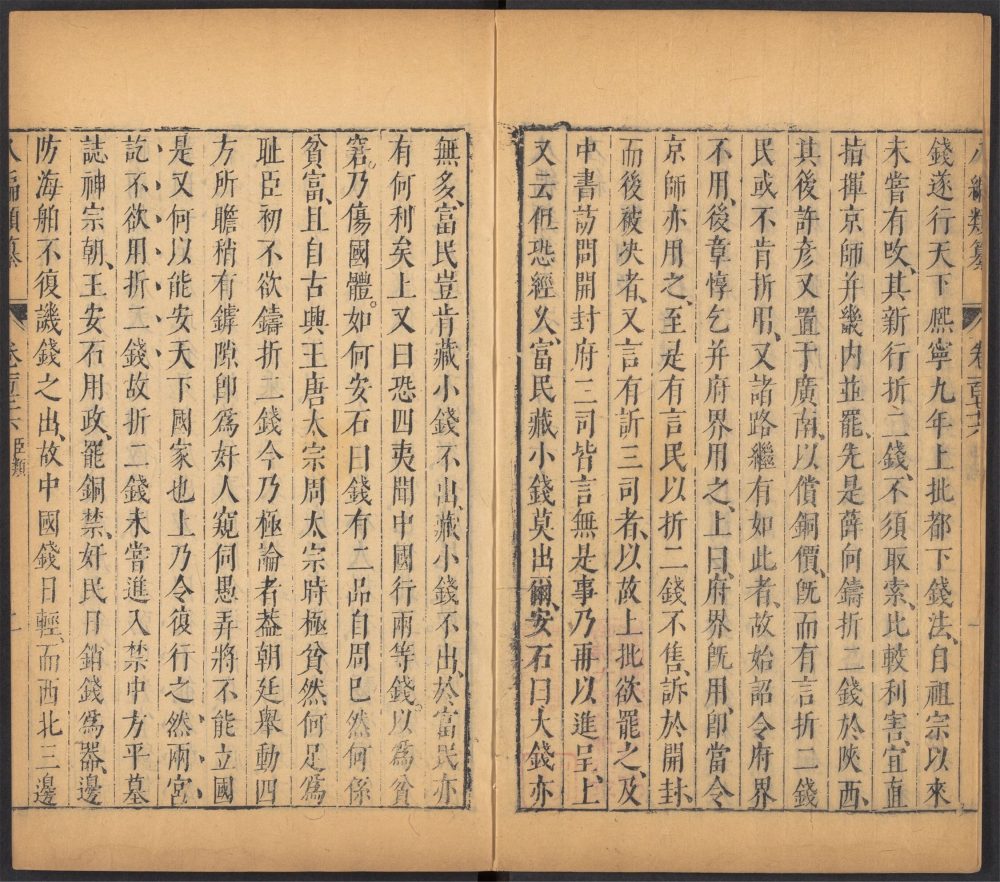 八編類纂
卷一百三十六
錢遂行天下熈寧九年上批都下錢法自祖宗以來
未嘗有攺其新行折二錢不須取索比較利害宜直
指揮京師并畿内並罷先是薛向鑄折二錢於陜西
其後許彦又置于廣南以償銅價旣而有言折二錢
民或不肯折用又諸路繼有如此者故始詔令府界
不用後章惇乞并府界用之上曰府界旣用卽當令
京師亦用之至是有言民以折二錢不售訴於開封
而後被决者又言有訢三司者以故上批欲罷之及
中書訪問開封府三司皆言無是事乃再以進呈上
又云但恐經久富民藏小錢莫出爾安石曰大錢亦
無多富民豈肯藏小錢不出藏小錢不出於富民亦
有何利矣上又曰恐四夷聞中國行兩等錢以爲貧
窘乃傷國體如何安石曰錢有二品自周巳然何係
貧富且自古興王唐太宗周太宗時極貧然何足爲
耻臣初不欲鑄折二錢今乃極論者葢朝廷舉動四
方所瞻稍有罅隙卽爲奸人窺伺愚弄將不能立國
是又何以能安天下國家也上乃令復行之然兩宮
訖不欲用折二錢故折二錢未嘗進入禁中方平墓
誌神宗朝王安石用政罷銅禁奸民日銷錢爲器邊
防海舶不復譏錢之出故中國錢日輕而西北三邊
八編類纂
臣類